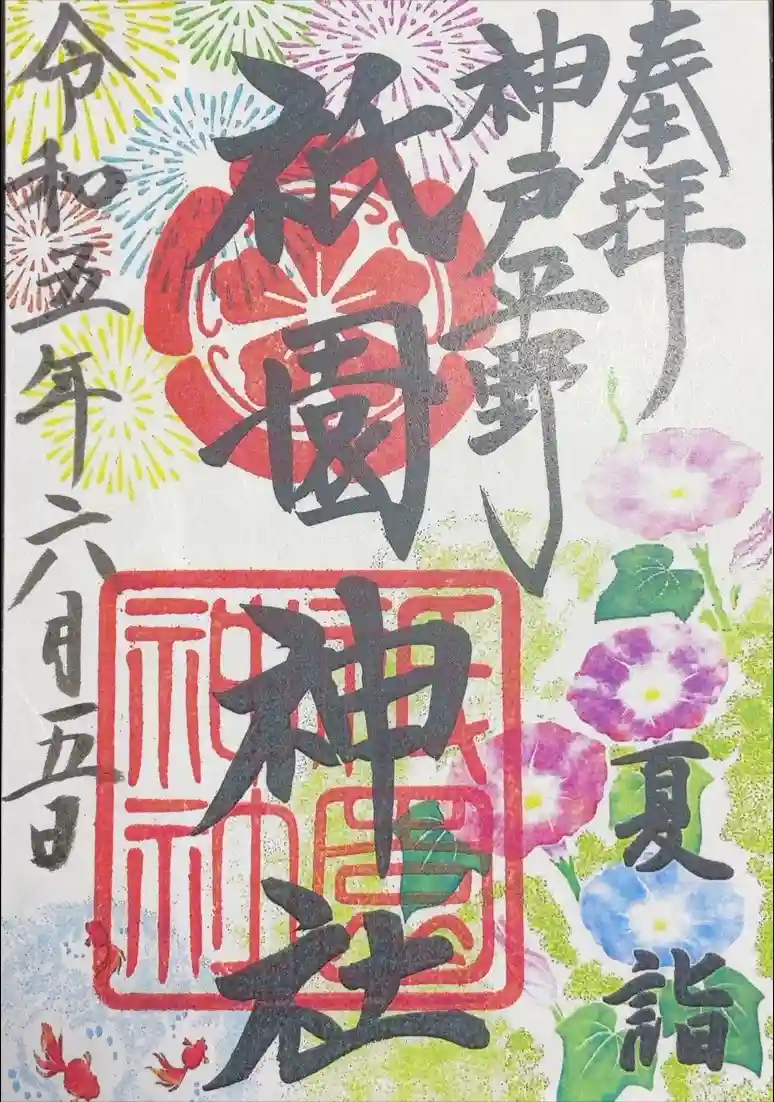 奉拝
神戸平野
祇園神社
令和五年六月五日
夏詣